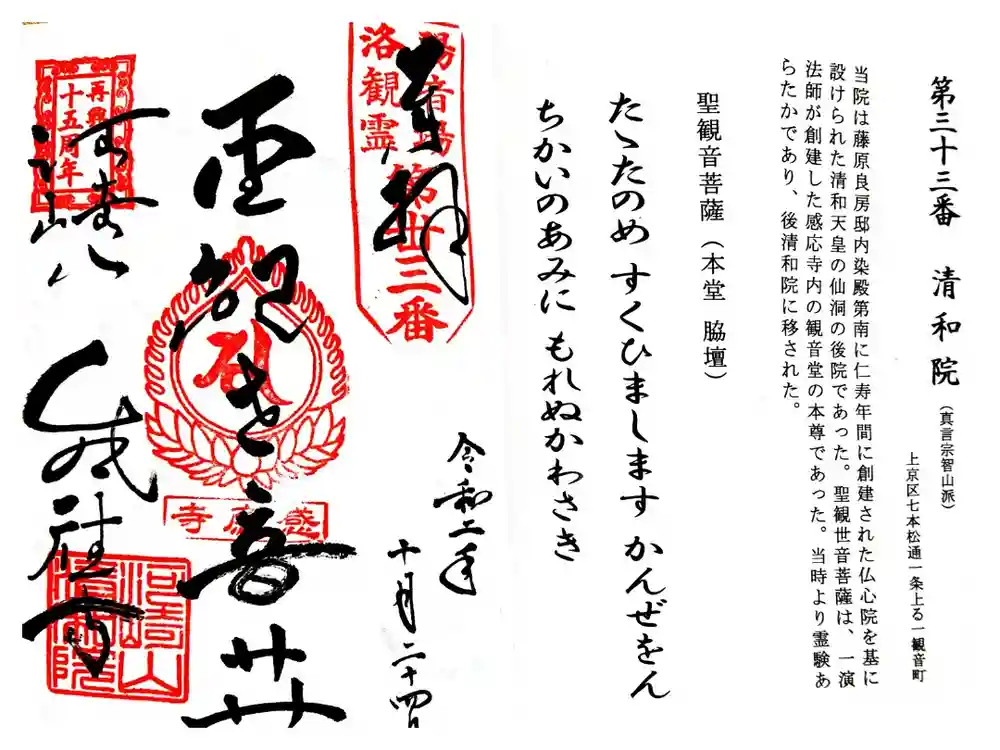 第三十三番　清和院（真言宗智山派）
上京区七本松通一条上る一観音町
当院は藤原良房邸内染殿第南に仁寿年間に創建された仏心院を基に
設けられた清和天皇の仙洞の後院であった。聖観世音菩薩は、一演
法師が創建した感応寺内の観音堂の本尊であった。当時より霊験あ
らたかであり、後清和院に移された。
聖観音菩薩（本堂　脇壇）
たゝたのめ すくひまします かんぜをん
ちかいのあみに もれぬかわさき
奉拝
洛陽観音霊場
第廿三番
令和二年
十月二十四日
感應寺
再興
十五周年
河崎山
清和院